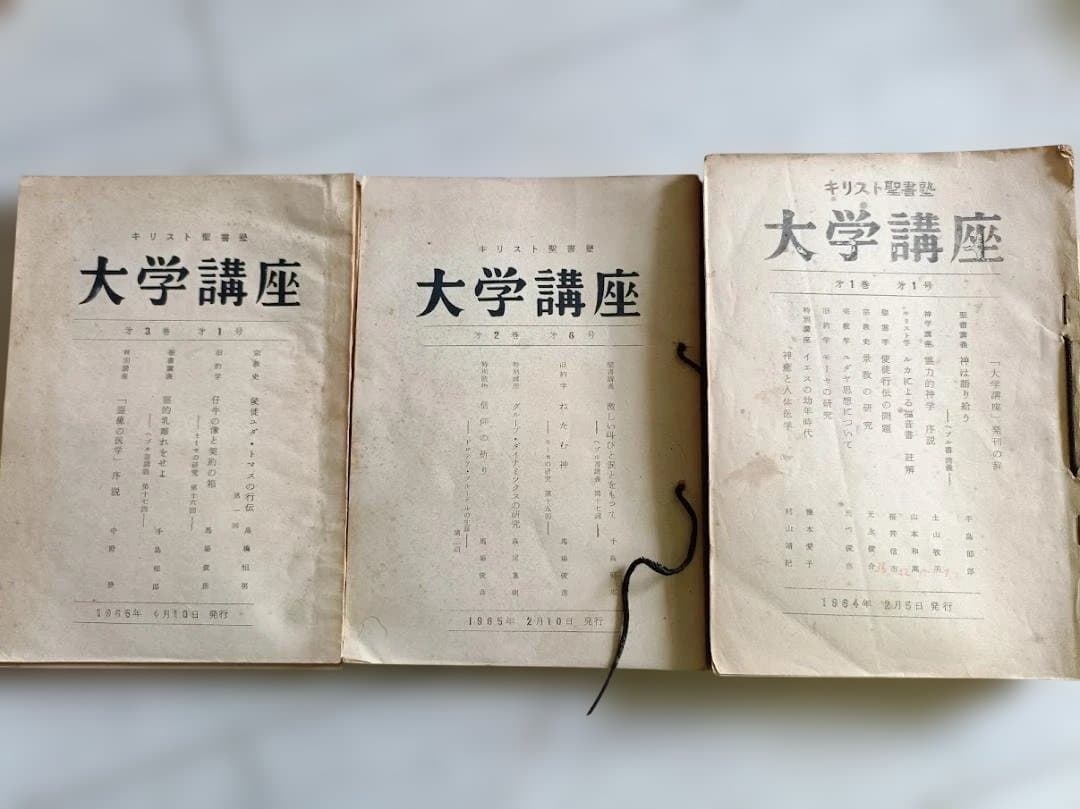 キリスト聖書塾
大学講座
才3巻 才1号
宗教史 使徒ユダ・トマスの行伝 第一回 高橋恒男
旧約学 仔牛の像と契約の箱
――モーセの研究 第十六回―― 馬場俊彦
聖書講義 霊的乳離れをせよ
――ヘブル書講義 第十七講―― 千島郁郎
特別講座 「霊癒の医学」序説
1965年 4月10日 発行
キリスト聖書塾
大学講座
才2巻 才6号
聖書講義 激しい叫びと涙とをもって
――ヘブル書講義 第十七講――
旧約学 ねたむ神
――モーセの研究 第十五回―― 馬場俊彦
特別講座 グループ・ダイナミックスの研究
特別読物 信仰の祈り
第二回 馬場俊彦
1965年 2月10日 発行
キリスト聖書塾
大学講座
才1巻 才1号
「大学講座」発刊の辞
聖書講義 神は語り給う
――ヘブル書講義――
神学講座 霊力的神学 序説
キリスト学 ルカによる福音書 註解
聖霊学 使徒行伝の問題
宗教史 景教の研究
宗教学 ユダヤ思想について
旧約学 モーセの研究
特別講座 イエスの幼年時代
神癒と人体医学
千島郁郎
山本和萬
桜井信市
村山靖紀
1964年 2月5日 発行